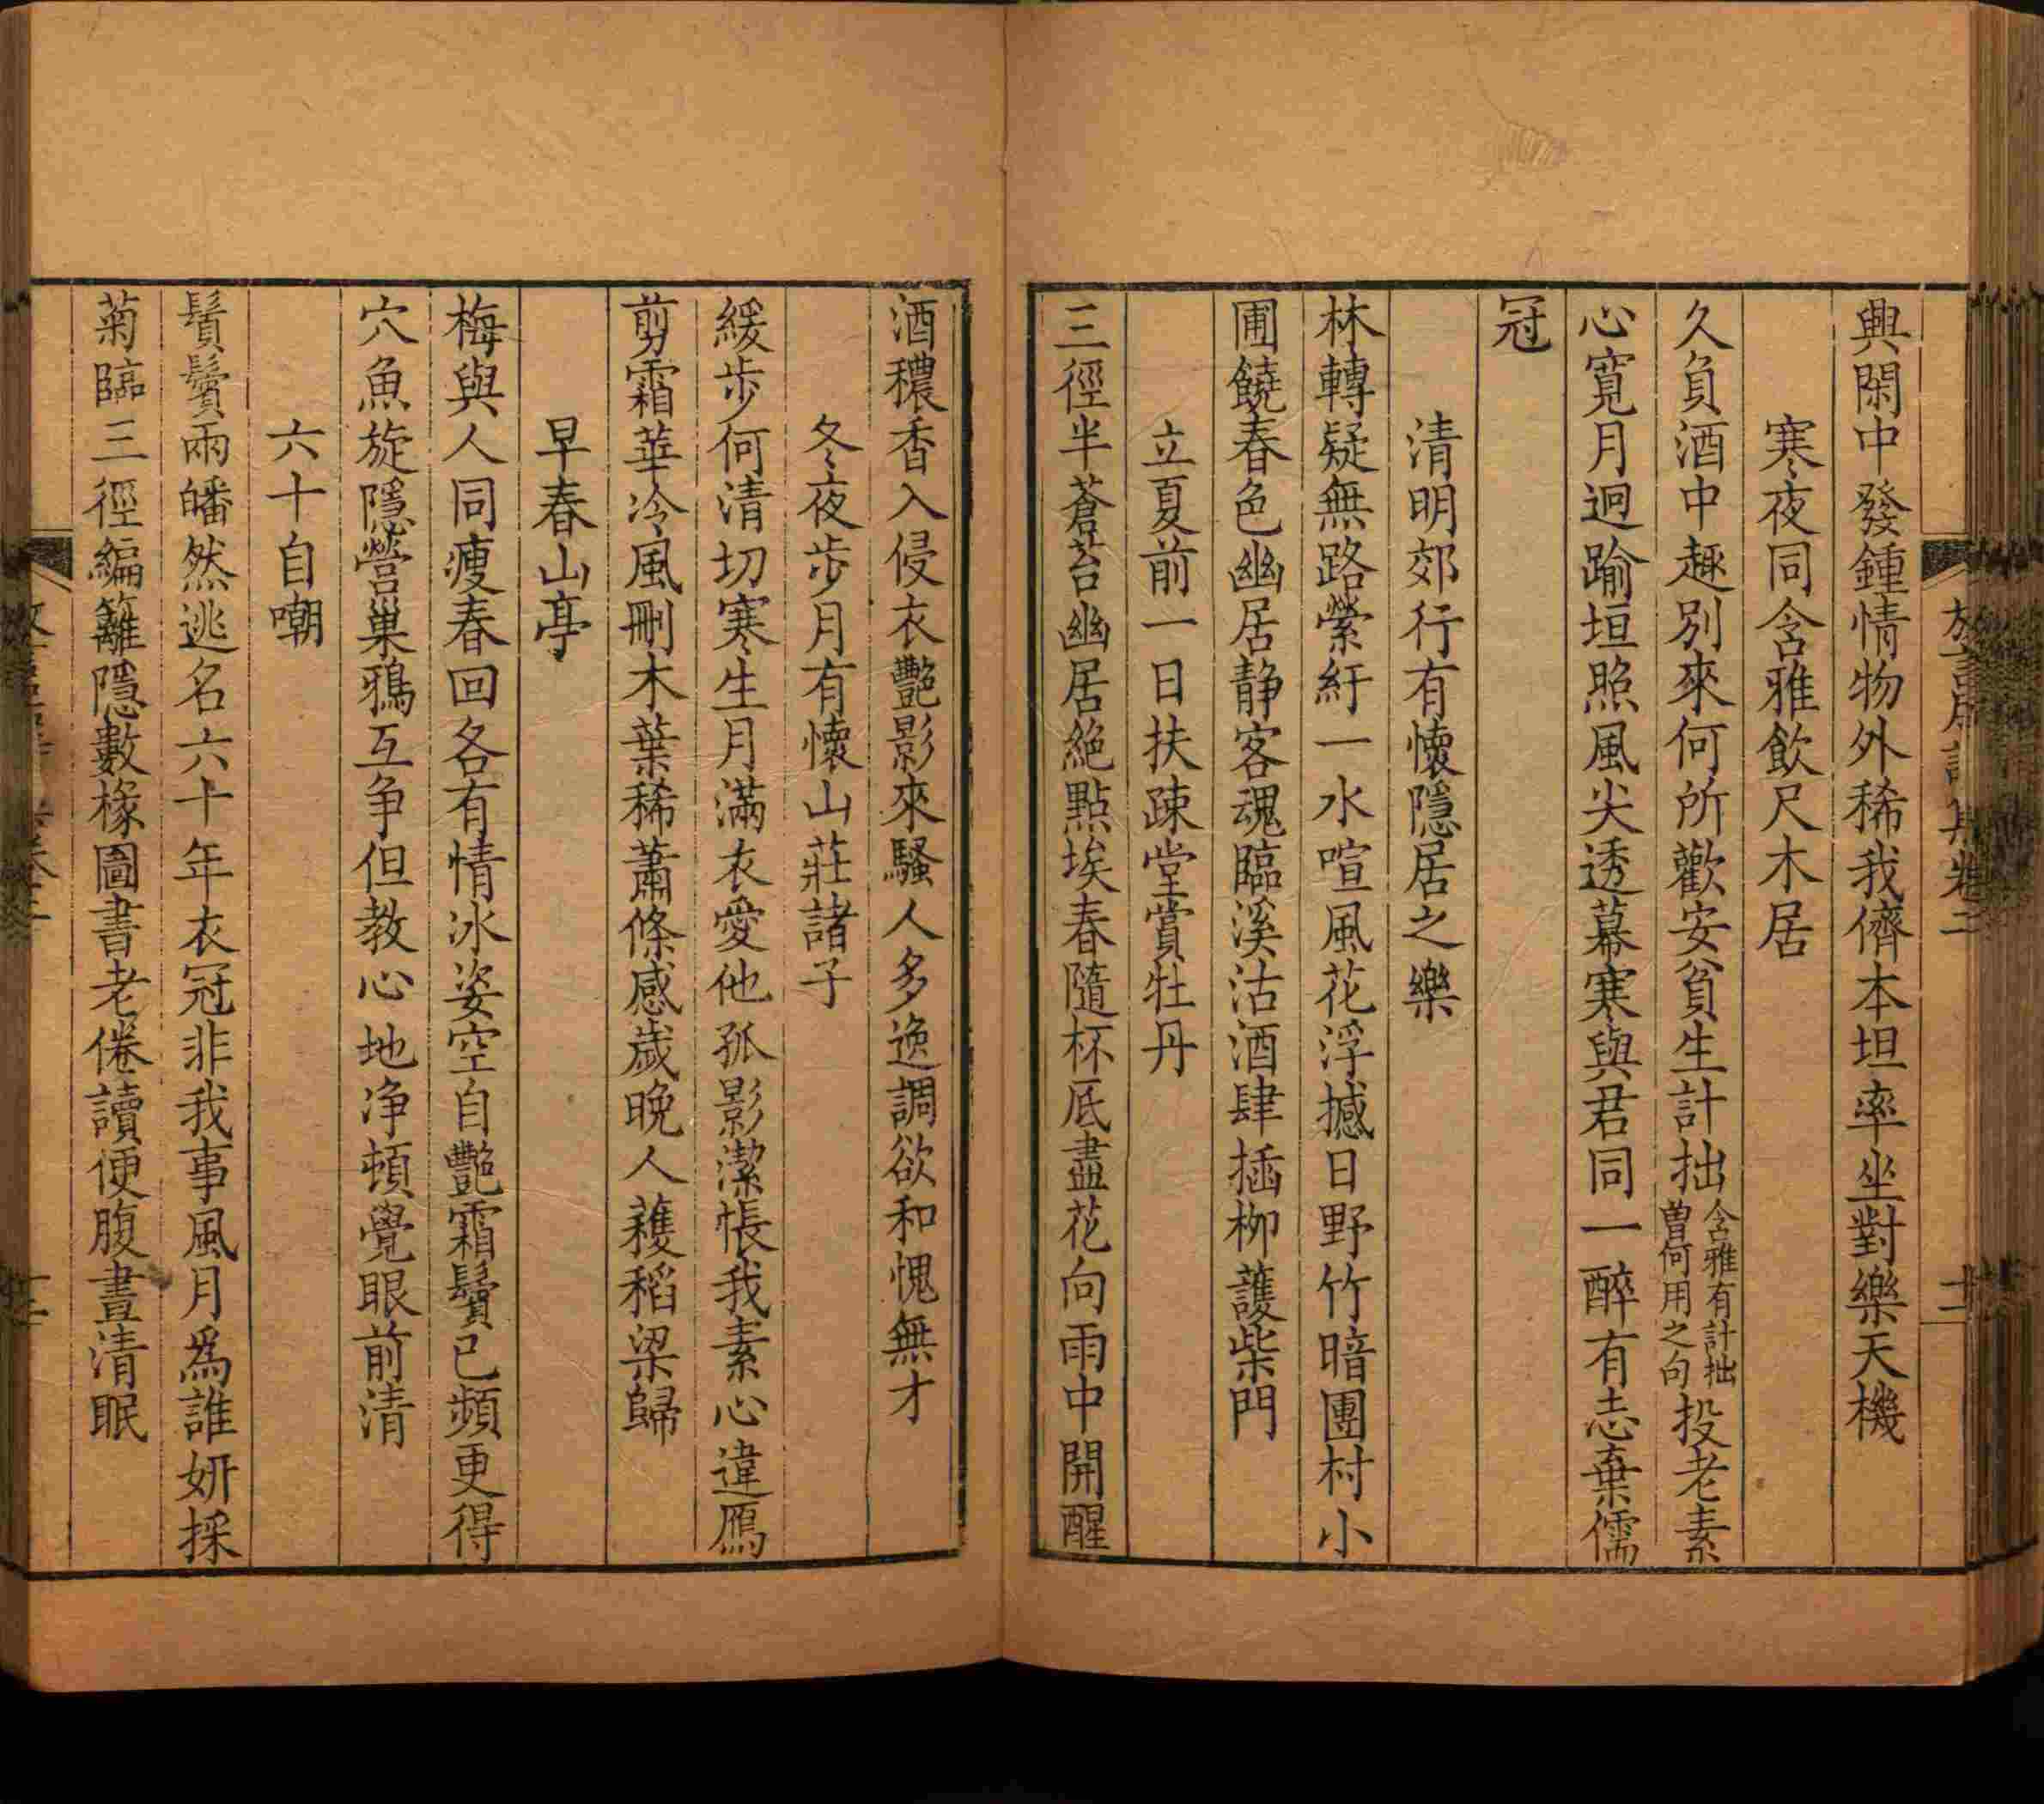 興閑中發鍾情物外稀我儕本坦率坐對樂天機
寒夜同含雅飲尺木居
久負酒中趣別來何所歡安貧生計拙含雅有計拙曽何用之句投老素
心寬月迥踰垣照風尖透幕寒與君同一醉有志棄儒
冠
清明郊行有懷隱居之樂
林轉疑無路縈紆一水喧風花浮撼日野竹暗團村小
圃饒春色幽居静客魂臨溪沽酒肆插柳護柴門
立夏前一日扶疎堂賞牡丹
三徑半蒼苔幽居絶點埃春隨杯底盡花向雨中開醒
酒穠香入侵衣艷影來騷人多逸調欲和愧無才
冬夜步月有懷山莊諸子
緩步何清切寒生月滿衣愛他孤影潔悵我素心違鴈
剪霜華冷風刪木葉稀蕭條感歲晚人穫稻梁歸
早春山亭
梅與人同瘦春回各有情冰姿空自艷霜鬢已頻更得
穴魚旋隱營巢鴉互争但教心地净頓覺眼前清
六十自嘲
鬚鬢兩皤然逃名六十年衣冠非我事風月爲誰妍採
菊臨三徑編籬隱數椽圖書老倦讀便腹晝清眠
卷二
十二